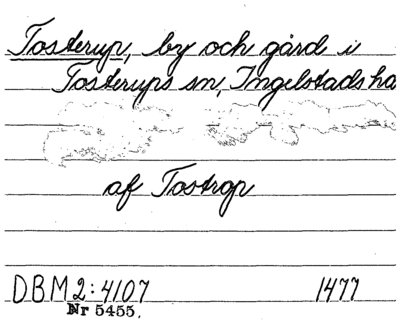 Tosterup, by och gård i
Tosterups sn, Ingelstads ha
af Tostrop
DBM 2:4107 1477
Nr 5455.